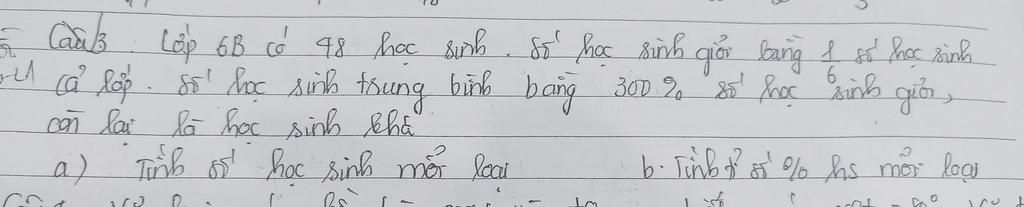 Câu3. Lớp 6B có 48 học sinh. số học sinh giỏi bằng 1/6 số học sinh
cả lớp. số học sinh trung bình bằng 300% số học sinh giỏi,
còn lại là học sinh khá
a) Tính số học sinh mỗi loại b. Tính tỉ số % hs mỗi loại